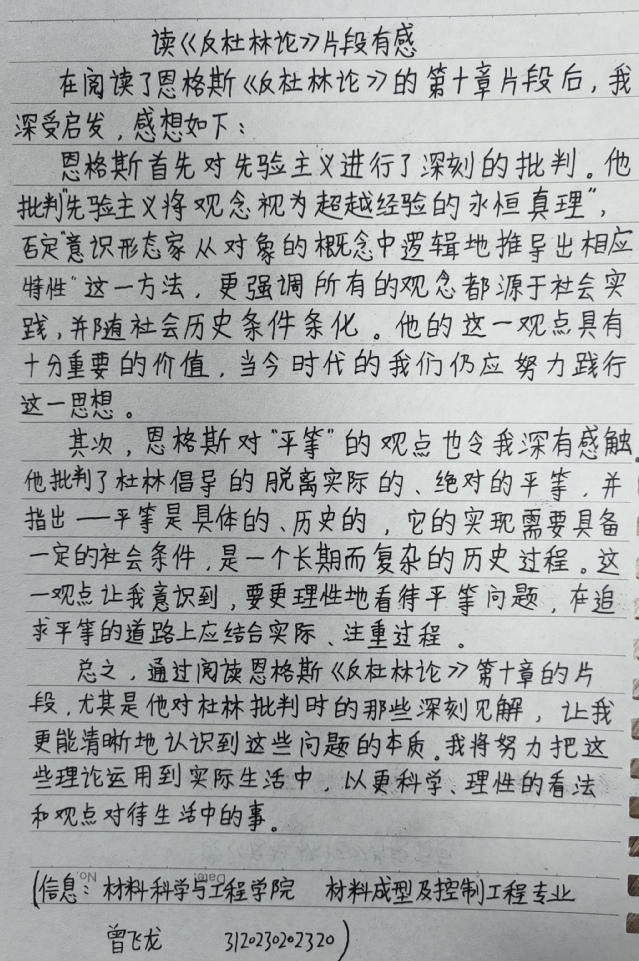 读《反杜林论》片段有感
在阅读了恩格斯《反杜林论》的第十章片段后，我
深受启发，感想如下：
恩格斯首先对先验主义进行了深刻的批判。他
批判"先验主义将观念视为超越经验的永恒真理"，
否定"意识形态家从对象的概念中逻辑地推导出相应
特性"这一方法，更强调所有的观念都源于社会实
践，并随社会历史条件条化。他的这一观点具有
十分重要的价值，当今时代的我们仍应努力践行
这一思想。
其次，恩格斯对"平等"的观点也令我深有感触。
他批判了杜林倡导的脱离实际的、绝对的平等，并
指出——平等是具体的、历史的，它的实现需要具备
一定的社会条件，是一个长期而复杂的历史过程。这
一观点让我意识到，要更理性地看待平等问题，在追
求平等的道路上应结合实际、注重过程。
总之，通过阅读恩格斯《反杜林论》第十章的片
段，尤其是他对杜林批判时的那些深刻见解，让我
更能清晰地认识到这些问题的本质。我将努力把这
些理论运用到实际生活中，以更科学、理性的看法
和观点对待生活中的事。
No. Date
(信息：材料科学与工程学院 材料成型及控制工程专业
曾飞龙 3120230202320)